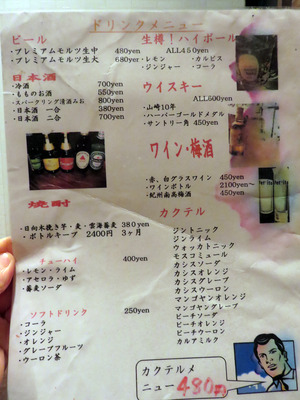 ドリンクメニュー
ビール
・プレミアムモルツ生中 480yen
・プレミアムモルツ生大 680yer
日本酒
・冷酒 700yen
・もものお酒 550yen
・スパークリング清酒みお 800yen
・日本酒 一合 380yen
・日本酒 二合 700yen
焼酎
・日向木挽き芋・麦・雲海蕎麦 380yen
・ボトルキープ 2400円 3ヶ月
チューハイ 400yen
・レモン・ライム
・アセロラ・ゆず
・蕎麦ソーダ
ソフトドリンク 250yen
・コーラ
・ジンジャー
・オレンジ
・グレープフルーツ
・ウーロン茶
生搾！ハイボール
ALL450yen
・レモン ・カルピス
・ジンジャー ・コーラ
ウイスキー
ALL500yen
・山崎10年
・ハーパーゴールドメダル
・サントリー角 450yen
ワイン・梅酒
・赤、白グラスワイン 450yen
・ワインボトル 2100yen〜
・紀州南高梅酒 450yen
カクテル
ジントニック
ジンライム
ウォッカトニック
モスコミュール
カシスソーダ
カシスオレンジ
カシスグレープ
カシスウーロン
マンゴヤンオレンジ
マンゴヤンコーラ
ピーチソーダ
ピーチオレンジ
ピーチウーロン
カルアミルク
カクテルメ
ニュー 480円